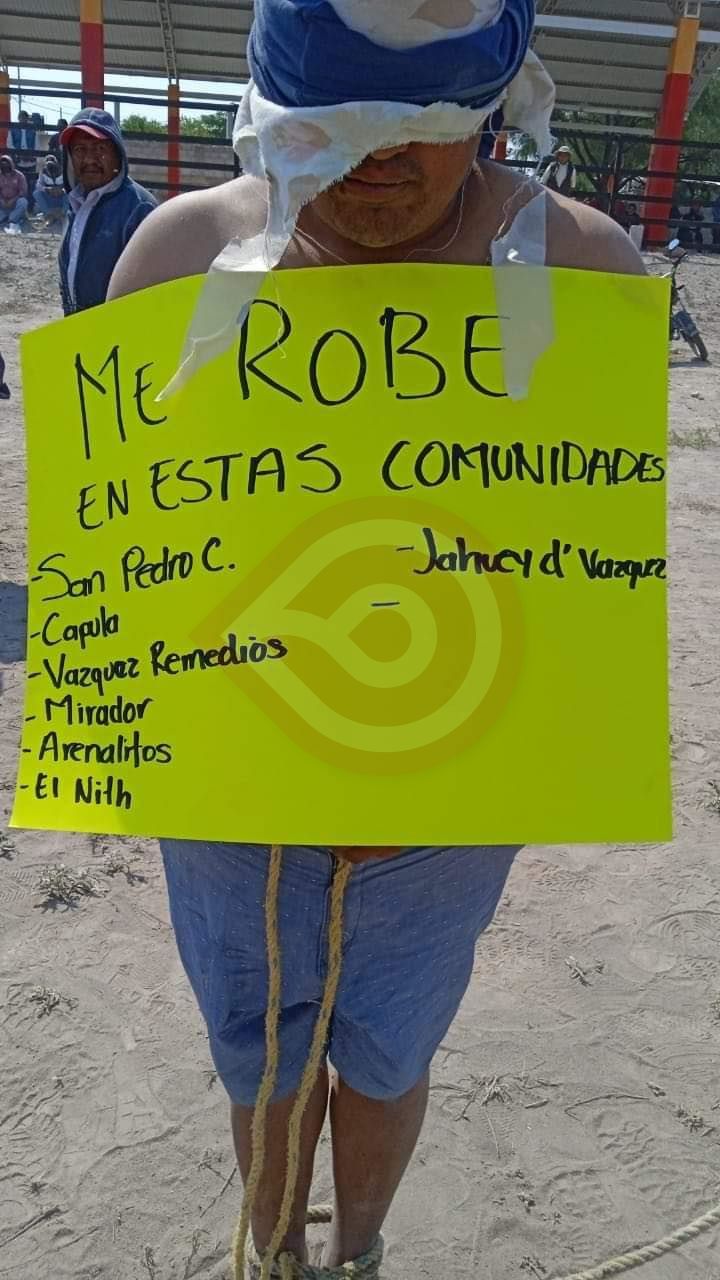 ME ROBE
EN ESTAS COMUNIDADES
-San Pedro C.
-Capula
-Vazquez Remedios
-Mirador
-Arenalitos
-El Nith
-Jahuey d' Vazquez
-